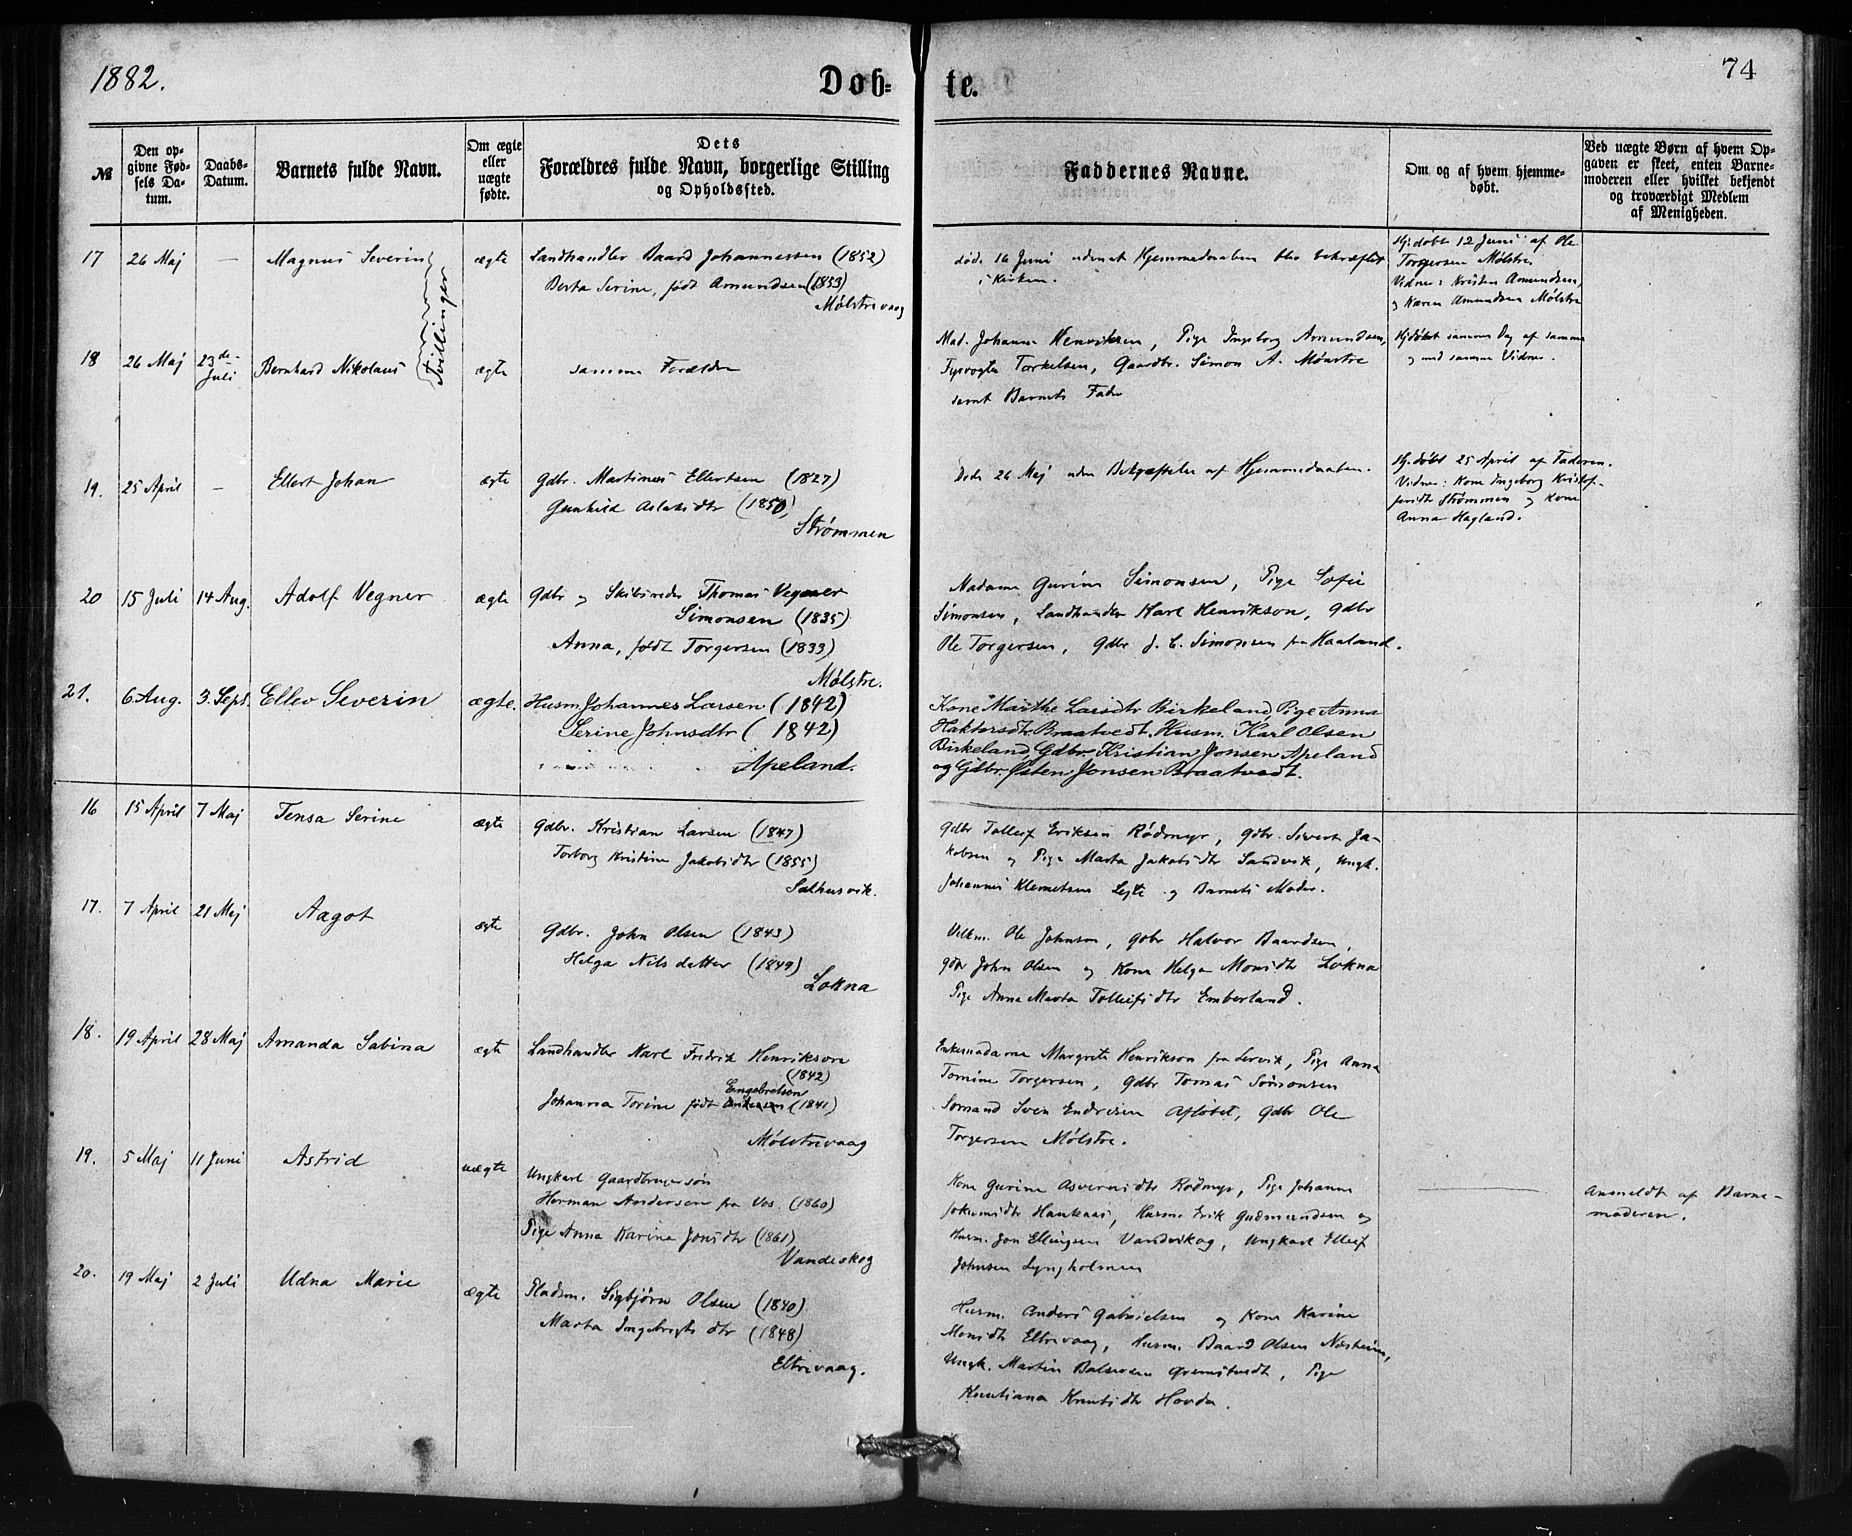 1882.
Dob-
te.
74
№
Den op-
givne Fød-
sels Da-
tum.
Daabs-
Datum.
Barnets fulde Navn.
Om ægte
eller
uægte
fødte.
Dets
Forældres fulde Navn, borgerlige Stilling
og Opholdssted.
Faddernes Navne.
Om og af hvem hjemme-
døbt.
Ved uægte Børn af hvem Op-
gaven er skeet, enten Barne-
moderen eller hvilket bekjendt
og troværdigt Medlem
af Menigheden.
17 26 Maj — Magnus Severin ægte Landhandler Baard Johannessen (1852)
Berta Serine, født Amundsen (1853)
Mølstrevaag
døde 16 Juni uden at Hjemmedaaben blev bekræftet
i Kirken.
Hj. døbt 12 Juni af Ole
Torgersen Mølstre
Vidner: Kristen Amundsen,
og Karen Amundsen Mølstre
Tvillinger
18 26 Maj 23de Juli Bernhard Nikolaus ægte samme Forældre
Mad. Johanne Henriksen, Pige Ingeborg Amundsen,
Torkelsen, Gaardbr. Simon A. Mølstre
samt Barnets Fader
Hjdøbt samme Dag af samme
og med samme Vidner.
19. 25 April — Ellert Johan ægte Gdbr. Martines Ellertsen (1827)
Gunhild Aslaksdtr (1850)
Strømmen
Døde 26 Maj uden Bekræftelse af Hjemmedaaben.
Hj. døbt 25 April af Faderen.
Vidner: Kone Ingeborg Kristof-
fersdt Strømmen og Kone
Anna Hagland.
20 15 Juli 14 Aug. Adolf Vegner ægte Gdbr og Skibsreder Thomas Vegner
Simonsen (1835)
Anna, født Torgersen (1833)
Mølstre.
Madame Gurine Simonsen, Pige Sofie
Simonsen, Landhandler Karl Henrikson, Gdbr
Ole Torgersen, Gdbr J. C. Simonsen fra Haaland.
21. 6 Aug. 3. Sept. Ellev Severin ægte. Husm. Johannes Larsen (1842)
Serine Johnsdtr (1842)
Apeland.
Kone Marthe Larsdtr Birkeland, Pige Anna
Haktorsdtr Braatvedt, Husm. Karl Olsen
Birkeland, Gdbr. Kristian Jonsen Apeland
og Gdbr. Østen Jonsen Braatvedt.
16 15 April 7 Maj Tensa Serine ægte Gdbr. Kristian Larsen (1847)
Torborg Kristine Jakobsdtr (1855)
Salhusvik.
Gdbr Tollef Eriksen Rødmyr, Gdbr. Sivert Ja-
kobsen og Pige Marta Jakobsdtr Sandvik, Ungk.
Johannes Klemetsen Lejte og Barnets Moder.
17. 7 April 21 Maj Aagot ægte Gdbr. John Olsen (1843)
Helga Nilsdatter (1849)
Lokna
Ole Johnsen, Gdbr Halvor Baardsen,
gdbr John Olsen og Kone Helga Monsdtr Lokna
Pige Anna Marta Tollefsdtr Emberland.
18. 19 April 28 Maj Amanda Sabina ægte Landhandler Karl Fredrik Henrikson
(1842)
Engebretsen
Johanna Torine født (1841)
Mølstrevaag
Enkemadame Margrete Henrikson fra Lervik, Pige Anna
Tomine Torgersen, Gdbr Tomas Simonsen
Sømand Sven Endresen Afløbet, Gdbr Ole
Torgersen Mølstre.
19. 5 Maj 11 Juni Astrid uægte Ungkarl Gaardbrugersøn
Herman Anderson fra Vos. (1860)
Pige Anna Karina Jonsdtr (1861)
Vandeskog
Kone Gurine Asversdtr Rødmyr, Pige Johanne
Jokumsdtr Haukaas, Husm. Erik Gudmundsen og
Husm. Jon Ellingsen Vandvikag, Ungkarl Ellef
Johnsen Lyngholmen
Anmeldt af Barne-
moderen.
20. 19 Maj 2 Juli Udna Marie ægte Pladsm. Sigbjørn Olsen (1840)
Marta Ingebrigtsdtr (1848)
Eltrevaag.
Husm. Anders Gabrielsen og Kone Karine
Monsdtr Eltrevaag, Husm. Baard Olsen Næsheim,
Ungk. Martin Balsersen Grønstvedt, Pige
Knutsdtr Hovda.